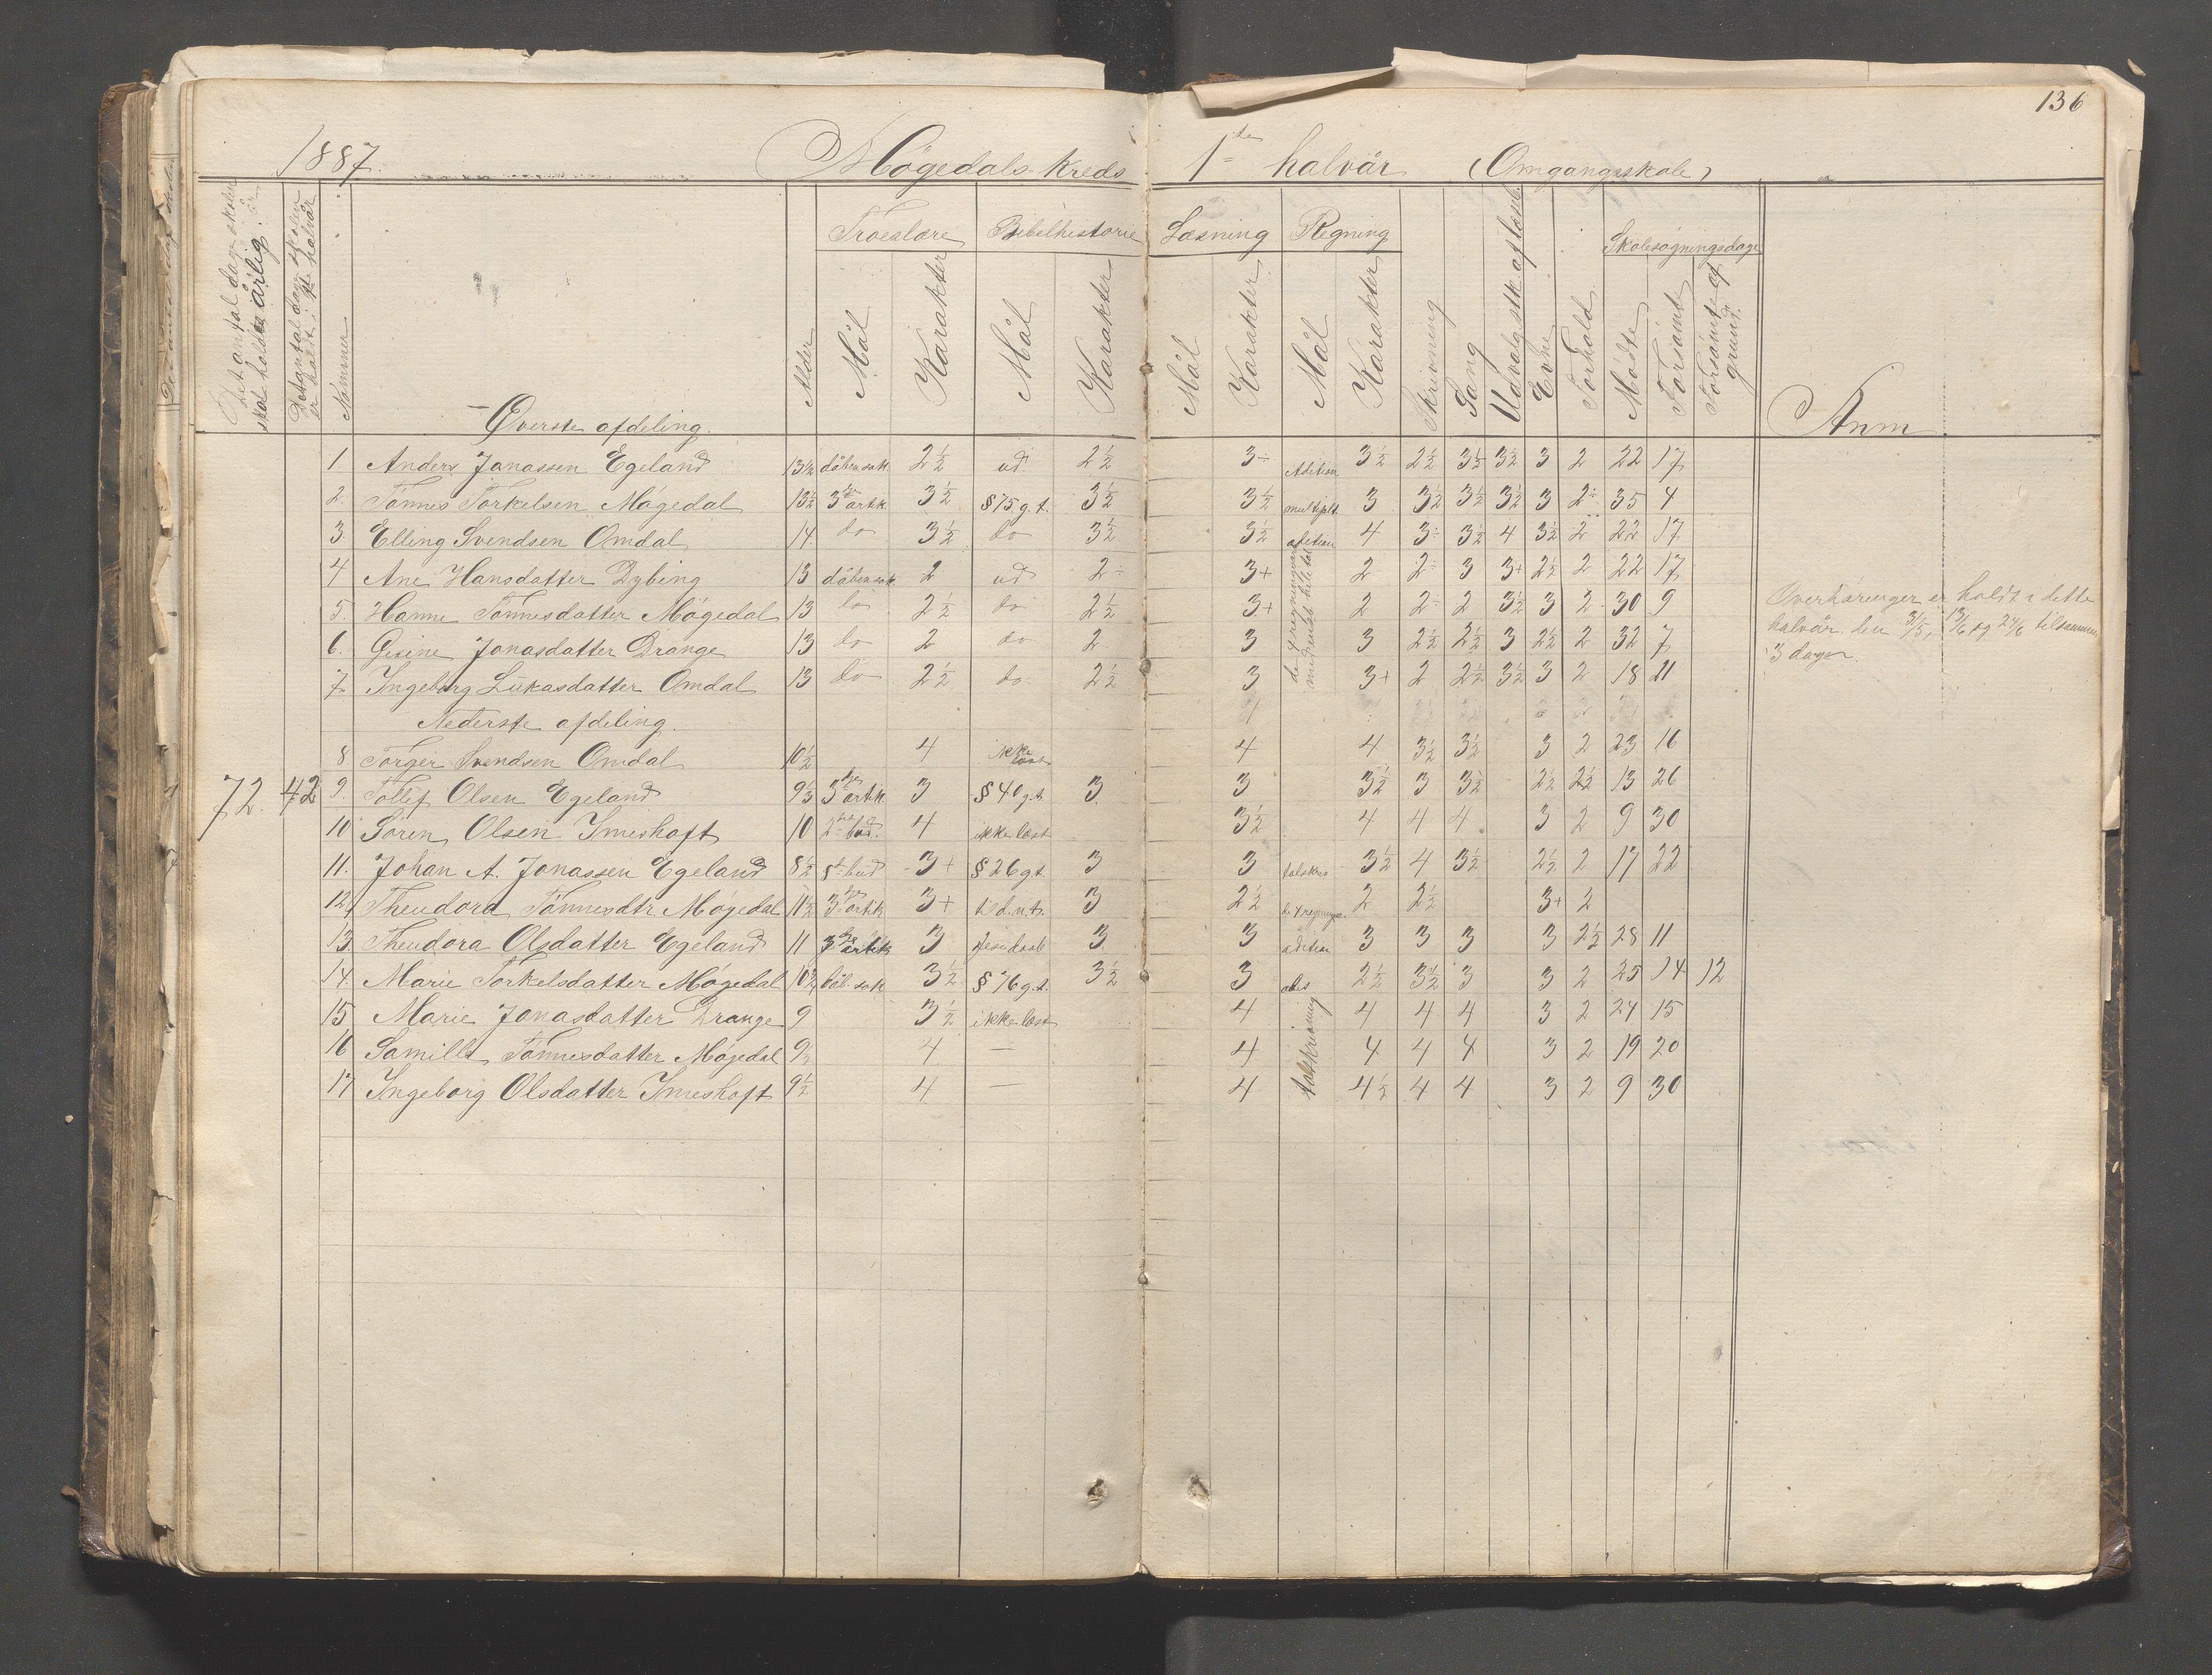 136
1887. Mögedals Kreds 1ste halvår (Omgangsskole)
Det antal dage skolen skal holdes årlig.
Det antal dage skolen er holdt i halvår
Nummer
Øverste afdeling.
Alder
Troeslære Bibelhistorie Læsning Regning Skolesøgningsdage
Mål Karakter Mål Karakter Mål Karakter Mål Karakter Skrivning Sang Udvalg stk. af læseb. Evne Forhold Mödte Forsömte Forsömte af grund. Anm
1. Anders Janassen Egeland 13 1/4 döbn.sak. 2½ ud 2½ 3÷ Adition 3½ 2½ 3½ 3½ 3 2 22 17
2. Tönnes Torkelsen Mögedal 13½ 3die artk. 3½ §75 g.t. 3½ 3½ multipl. 3 3½ 3½ 3½ 3 2÷ 35 4
3 Elling Svendsen Omdal 14 do 3½ do 3½ 3½ adition 4 3÷ 3½ 4 3½ 2 22 17
4 Ane Hansdatter Dybing 13 döben.sak 2 ud 2÷ 3+ 2 2÷ 3 3+ 2½ 2 22 17
5. Hanne Tönnesdatter Mögedal 13 do 2½ do 2½ 3+ 2 2÷ 2 3½ 3 2 30 9
6. Gesine Jonasdatter Drange 13 do 2 do 2 3 3 2½ 2½ 3 2½ 2 32 7
7 Ingeborg Lukasdatter Omdal 13 do 2½ do 2½ 3 3+ 2 2½ 3½ 3 2 18 21
de 4 regningsarter med enkelt hele tal
Overhöringer er holdt i dette
halvår den 3/5, 13/6 og 24/6 tilsammen
3 dage.
Nederste afdeling.
8 Torger Svendsen Omdal 10½ 4 ikke læst 4 4 3½ 3½ 3 2 23 16
72. 42 9. Tollef Olsen Egeland 9½ 3die artk. 3 §40 g.t. 3 3 3½ 3 3½ 2½ 2½ 13 26
10 Sören Olsen Imeshaft 10 2det bud. 4 ikke læst 3½ 4 4 4 3 2 9 30
11. Johan A. Jonassen Egeland 8½ 5te bud 3+ §26 g.t. 3 3 talskriv 3½ 4 3½ 2½ 2 17 22
12 Theodora Tönnesdtr. Mögedal 11½ 3die artk 3+ 3 2½ de 4 regningsa. 2 2½ 3+ 2
13 Theodora Olsdatter Egeland 11 3die artk 3 3 3 adition 3 3 3 3 2½ 28 11
14. Marie Torkelsdatter Mögedal 10¾ döb. sak 3½ §76 g.t. 3½ 3 ades 2½ 3½ 3 3 2 25 14 12
15 Marie Jonasdatter Drange 9 3½ ikke læst 4 4 4 4 3 2 24 15
16 Samille Tönnesdatter Mögedal 9½ 4 — 4 4 4 4 3 2 19 20
17 Ingeborg Olsdatter Imeshaft 9½ 4 — 4 4½ 4 4 3 2 9 30
talskrivning